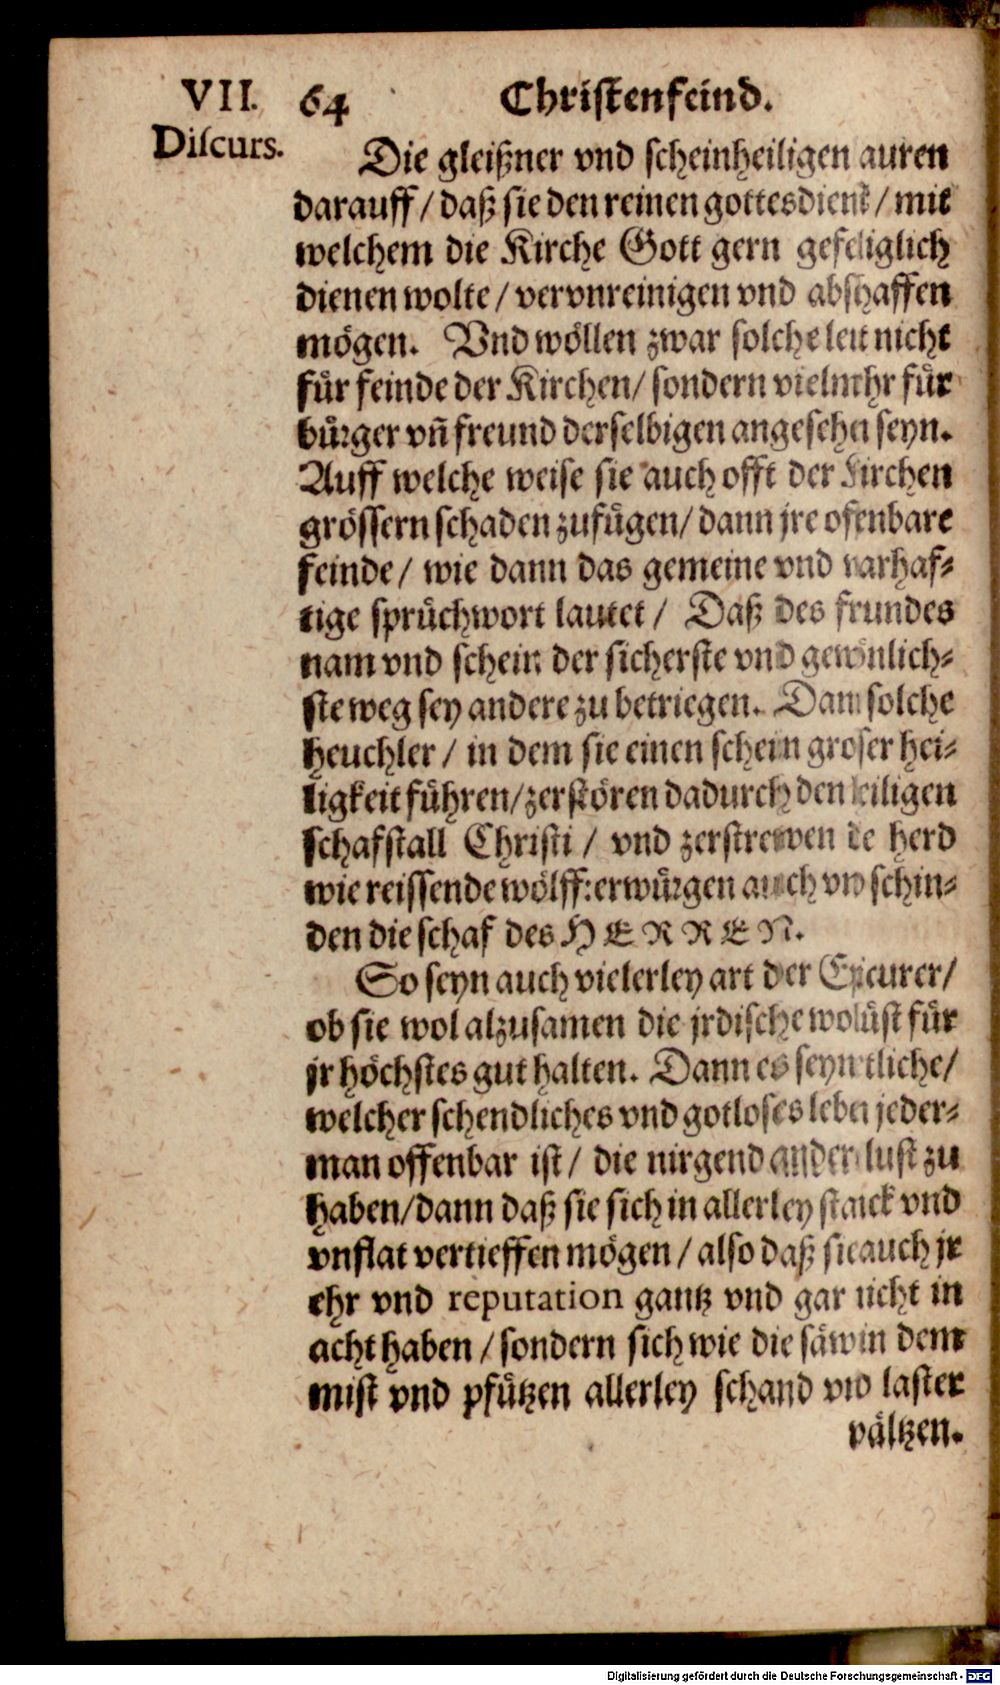 VII. 64 Christenfeind.
Discurs.
Die gleißner vnd scheinheiligen lauren
darauff / daß sie den reinen gottesdienst / mit
welchem die Kirche Gott gern gefelliglich
dienen wolte / vervnreinigen vnd abschaffen
mögen. Vnd wöllen zwar solche leut nicht
für feinde der Kirchen / sondern vielmehr für
bürger vñ freund derselbigen angesehen seyn.
Auff welche weise sie auch offt der Kirchen
grössern schaden zufügen / dann jre offenbare
feinde / wie dann das gemeine vnd warhaf-
tige sprüchwort lautet / Daß des freundes
nam vnd schein der sicherste vnd gewönlich-
ste weg sey andere zu betriegen. Dann solche
heuchler / in dem sie einen schein groser hei-
ligkeit führen / zerstören dadurch den heiligen
schafstall Christi / vnd zerstrewen die herd
wie reissende wölff: erwürgen auch vnd schin-
den die schaf des HERREN.
So seyn auch vielerley art der Epicurer /
ob sie wol alzusamen die jrdische wolüst für
jr höchstes gut halten. Dann es seyn etliche /
welcher schendliches vnd gotloses leben jeder-
man offenbar ist / die nirgend andern lust zu
haben / dann daß sie sich in allerley stanck vnd
vnflat vertieffen mögen / also daß sie auch jr
ehr vnd reputation gantz vnd gar nicht in
acht haben / sondern sich wie die säw in dem
mist vnd pfützen allerley schand vnd laster
wältzen.
Digitalisierung gefördert durch die Deutsche Forschungsgemeinschaft - DFG